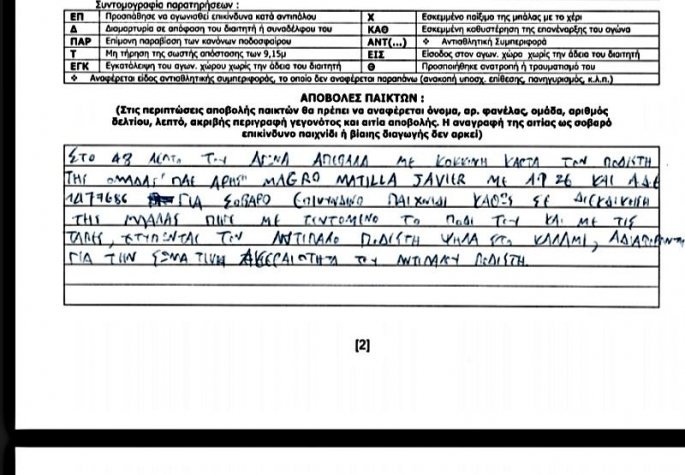 Συντομογραφία παρατηρήσεων :
ΕΠ Προσπάθησε να αγωνισθεί επικίνδυνα κατά αντιπάλου Χ Εσκεμμένο παίξιμο της μπάλας με το χέρι
Δ Διαμαρτυρία σε απόφαση του διαιτητή ή συναδέλφου του ΚΑΘ Εσκεμμένη καθυστέρηση της επανέναρξης του αγώνα
ΠΑΡ Επίμονη παραβίαση των κανόνων ποδοσφαίρου ΑΝΤ(...) ❖ Αντιαθλητική Συμπεριφορά
Τ Μη τήρηση της σωστής απόστασης των 9,15μ ΕΙΣ Είσοδος στον αγων. χώρο χωρίς την άδεια του διαιτητή
ΕΓΚ Εγκατάλειψη του αγων. χώρου χωρίς την άδεια του διαιτητή Θ Προσποιήθηκε ανατροπή ή τραυματισμό του
❖ Αναφέρεται είδος αντιαθλητικής συμπεριφοράς, το οποίο δεν αναφέρεται παραπάνω (ανακοπή υποσχ. επίθεσης, πανηγυρισμός, κ.λ.π.)
ΑΠΟΒΟΛΕΣ ΠΑΙΚΤΩΝ :
(Στις περιπτώσεις αποβολής παικτών θα πρέπει να αναφέρεται όνομα, αρ. φανέλας, ομάδα, αριθμός
δελτίου, λεπτό, ακριβής περιγραφή γεγονότος και αιτία αποβολής. Η αναγραφή της αιτίας ως σοβαρό
επικίνδυνο παιχνίδι ή βίαιης διαγωγής δεν αρκεί)
ΣΤΟ 43 ΛΕΠΤΟ ΤΟΥ ΑΓΩΝΑ ΑΠΕΒΑΛΑ ΜΕ ΚΟΚΚΙΝΗ ΚΑΡΤΑ ΤΟΝ ΠΟΔ/ΣΤΗ
ΤΗΣ ΟΜΑΔΑΣ ΠΑΕ ΑΡΗΣ MAGRO MATILLA JAVIER ΜΕ ΑΡ 26 ΚΑΙ Α.Δ.Ε
1477686 ΓΙΑ ΣΟΒΑΡΟ ΕΠΙΚΥΝΔΙΝΟ ΠΑΙΧΝΙΔΙ ΚΑΘΩΣ ΣΕ ΔΙΕΚΔΙΚΗΣΗ
ΤΗΣ ΜΠΑΛΑΣ ΠΗΓΕ ΜΕ ΤΕΝΤΩΜΕΝΟ ΤΟ ΠΟΔΙ ΤΟΥ ΚΑΙ ΜΕ ΤΙΣ
ΤΑΠΕΣ, ΧΤΥΠΩΝΤΑΣ ΤΟΝ ΑΝΤΙΠΑΛΟ ΠΟΔ/ΣΤΗ ΨΗΛΑ ΣΤΟ ΚΑΛΑΜΙ,
ΓΙΑ ΤΗΝ ΣΩΜΑΤΙΚΗ ΑΚΕΡΑΙΟΤΗΤΑ ΤΟΥ ΑΝΤΙΠΑΛΟΥ ΠΟΔ/ΣΤΗ.
[2]